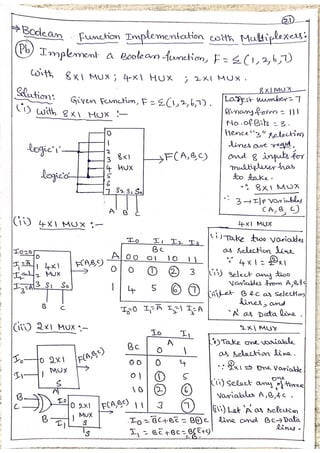 21
→ Boolean Function Implementation with Multiplexers:
(Pb) Implement a Boolean-function, F = Σ(1,2,6,7)
with 8x1 MUX ; 4x1 MUX ; 2x1 MUX.
Solution: Given Function, F = Σ(1,2,6,7).
(i) with 8x1 MUX :-
logic '1'
logic '0'
0
1
2
3
4
5
6
7
8x1
MUX
S2 S1 S0
A B C
F(A,B,C)
8x1 MUX
Largest number = 7
Binary form = 111
No. of Bits = 3.
Hence "3" selection
lines are reqd.
and 8 inputs for
multiplexer has
to take.
∴ 8x1 MUX
3 → I/P variables
(A, B, C)
(ii) 4x1 MUX :-
I0=0
I1=Ā
I2=1
I3=A
0
1
2
3
4x1
MUX
S1 S0
B C
F(A,B,C)
I0 I1 I2 I3
BC
A 00 01 10 11
0 0 1 2 3
1 4 5 6 7
I0=0 I1=Ā I2=1 I3=A
4x1 MUX
(i) Take two variables
as selection line
∵ 4x1 = 2²x1
(ii) Select any two
variables from A,B,C
(iii) Let B & C as selection
lines, and
'A' as Data line.
(iii) 2x1 MUX :-
I0
I1
0
1
2x1
MUX
S
A
F(A,B,C)
B
C
I0
B
I1
0
1
2x1
MUX
S
F(A,B,C)
I0 I1
A
BC 0 1
00 0 4
01 1 5
10 2 6
11 3 7
I0 = B̄C+BC̄ = B⊕C
I1 = BC̄+BC = B(C̄+C)
= B.
2x1 MUX
(i) Take one variable
as selection line.
∵ 2¹x1 ⇒ one variable
(ii) Select any one of three
variables A,B,C.
(iii) Let 'A' as selection
line and BC → Data
lines.